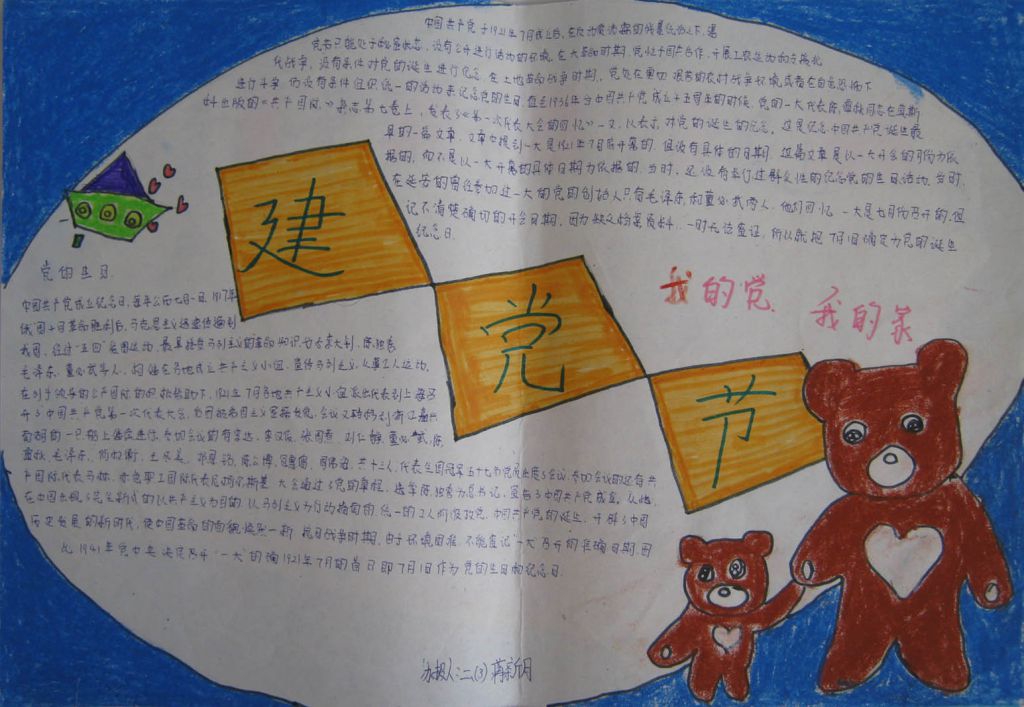 中国共产党于1921年7月成立后,在
党只能处于秘密状态,没有公开进行活动的环境。在大革命时期,党忙于国共合作、开展工农运动和支援北
伐战争,没有条件对党的诞生进行纪念。在土地革命战争时期,党处在
进行斗争,仍没有条件组织统一的活动来纪念党的生日。直至1936年
《共产国际》杂志第七卷上,发表了《第一次代表大会的回忆》一文,以表示对党的诞生的纪念。这是纪念中国共产党诞生最
早的一篇文章。文章中提到一大是1921年7月底开幕的,但没有具体的日期。这篇文章是以一大开会的月份为依
据的,而不是以一大开幕的具体日期为依据的。当时,还没有举行过群众性的纪念党的生日活动。当时,
在延安的曾经参加过一大的党的创始人只有毛泽东和董必武两人。他们回忆一大是七月份召开的,但
记不清楚确切的开会日期。因为缺乏档案资料,一时无法查证,所以就把7月1日确定为党的诞生
纪念日。
建
党
节
我的党 我的家
党的生日
中国共产党成立纪念日,每年公历七月一日。1917年
俄国十月革命胜利后,马克思主义迅速传播到
我国。经过“五四”爱国运动,最早接受马列主义的革命知识分子李大钊、陈独秀
毛泽东、董必武等人,相继在各地成立共产主义小组,宣传马列主义,从事工人运动。
在列宁领导的共产国际的积极帮助下,1921年7月各地共产主义小组派出代表到上海召
开了中国共产党第一次代表大会,
南湖的一只船上继续进行。参加会议的有李达、李汉俊、张国焘、刘仁静、董必武、陈
潭秋、毛泽东、何叔衡、王尽美、邓恩铭、陈公博、周佛海,共十三人,代表全国
产国际代表马林、大会通过了党的章程,选举陈独秀为总书记,宣布了中国共产党成立。从此,
在中国出现了完全新式的以共产主义为目的,以马列主义为行动指南的,统一的工人阶级政党。中国共产党的诞生,开辟了中国
历史发展的新时代,使中国革命的面貌焕然一新。抗日战争时期,由于环境困难,不能查记“一大”召开的准确日期,因
此1941年党中央决定召开“一大”的确1921年7月的首日即7月1日作为党的生日和纪念日。
办报人:二(3)蒋新月